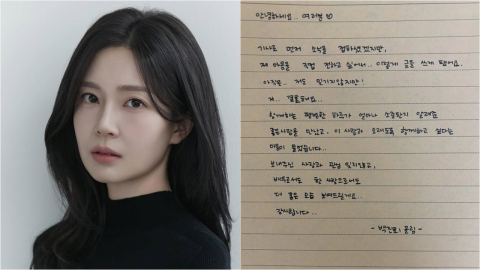 안녕하세요.. 여러분 :)
기사로 먼저 소식을 접하셨겠지만,
제 마음을 직접 전하고 싶어서.. 이렇게 글을 쓰게 됐어요.
아직은.. 저도 믿기지않지만!
저.. 결혼해요...
함께하는 평범한 하루가 얼마나 소중한지 알려준
좋은사람을 만났고, 이 사람과 오래도록 함께하고 싶다는
마음이 들었습니다...
보내주신 사랑과 관심 잊지않고,
배우로서도 한 사람으로서도
더 좋은 모습 보여드릴게요..
감사합니다..
- 박진 올림 -